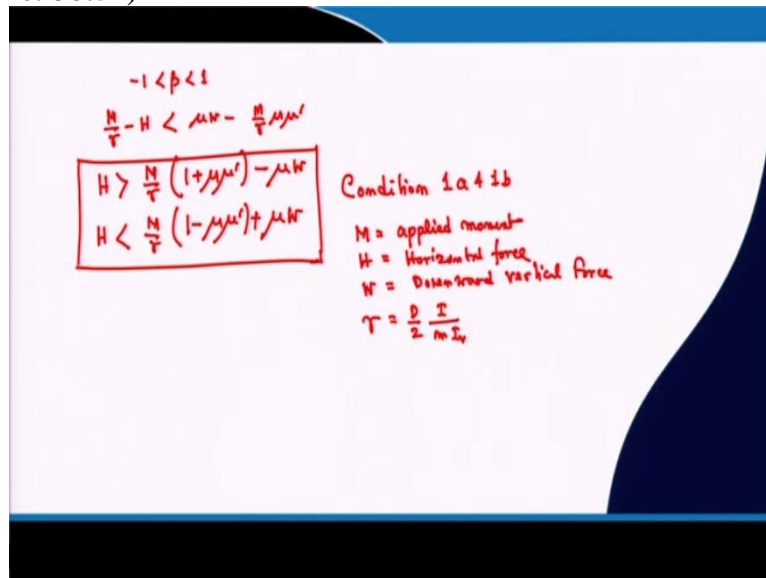 -1 < β < 1
M/r - H < μW - M/r μμ'
H > M/r (1+μμ') - μW
H < M/r (1-μμ') + μW
Condition 1a & 1b
M = applied moment
H = Horizontal force
W = Downward vertical force
r = D/2 I/mIv